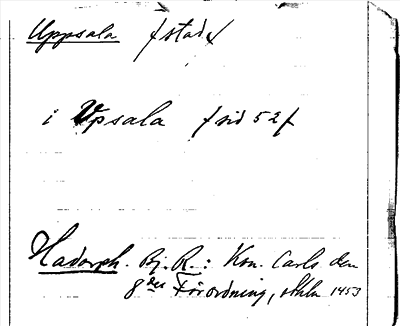 Uppsala /stad/
i Upsala /sid 52/
Hadorph. Bj. R.: Kon. Carls den
8des Förordning, sthlm 1453